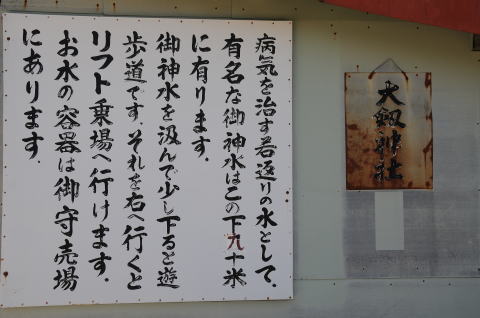 病気を治す若返りの水として、
有名な御神水はこの下九十米
に有ります。
御神水を汲んで少し下ると遊
歩道です、それを右へ行くと
リフト乗場へ行けます。
お水の容器は御守売場
にあります。
大剱神社